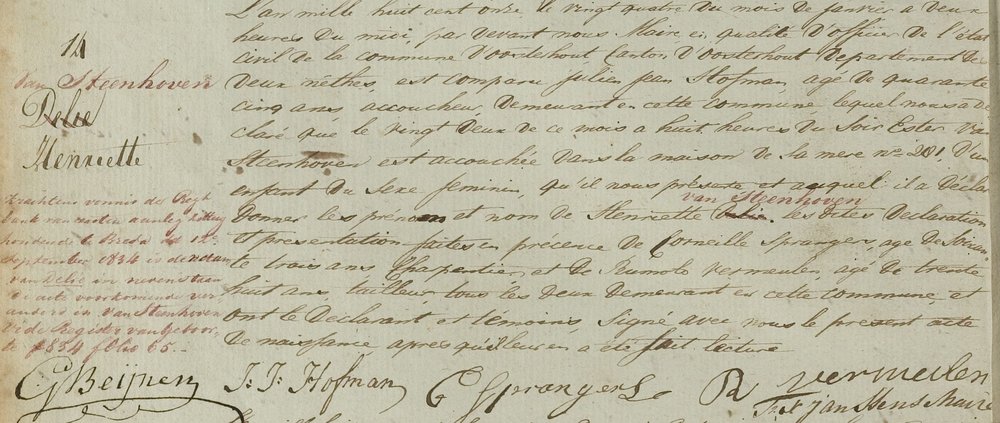 14
Van Steenhoven
Delie
Henriette
Krachtens vonnis der Regt
bank van eersten aanleg zitting
houdende te Breda dd 12e
September 1834 is de naam
van Delie in nevenstaan
de acte voorkomende ver
anderd in Van Steenhoven
Vide Register van geboor
te 1834 folio 65.-
L'an mille huit cent onze, le vingt quatre du mois de janvier a deux
heures du midi, par devant nous Maire en qualité d'officier de l'état
civil de la commune d'oosterhout Canton d'oosterhout departement des
deux néthes, est comparu julien jean Hofman, agé de quarante
cinq ans accoucheur demeurant en cette commune lequel nous a dé
claré que le vingt deux de ce mois a huit heures du Soir Ester Van
Steenhoven est accouchée dans la maison de la mere no 281, d'un
enfant du Sexe feminin, qu'il nous présente et auquel il a déclaré
van Steenhoven
donner les prénom et nom de Henriette Delie. les dites déclaration
et présentation faites en présence de Corneille Spranger, age de soixan
te trois ans Charpentier, et de Rumole vermeulen, agé de trente
huit ans, tailleur, tous les deux demeurant en cette commune, et
ont le déclarant et témoins, signé avec nous le present acte
de naissance après qu'il leur en a été fait lecture
C G Beijnen J: J: Hofman C Sprangers R Vermeulen
janssens Maire